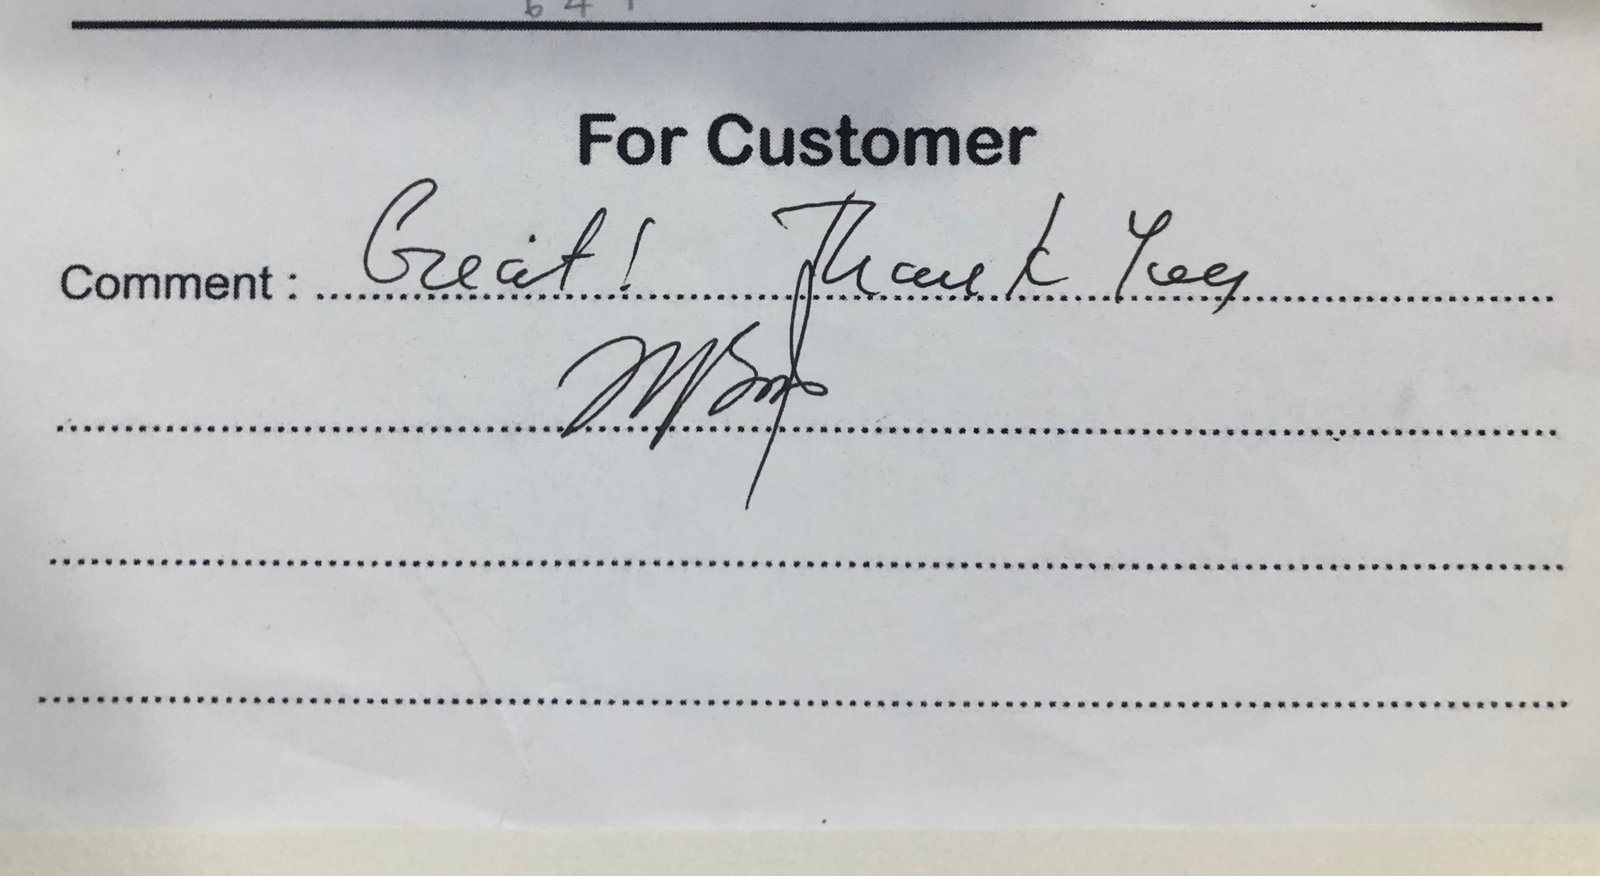 For Customer
Comment : Great! Thank You